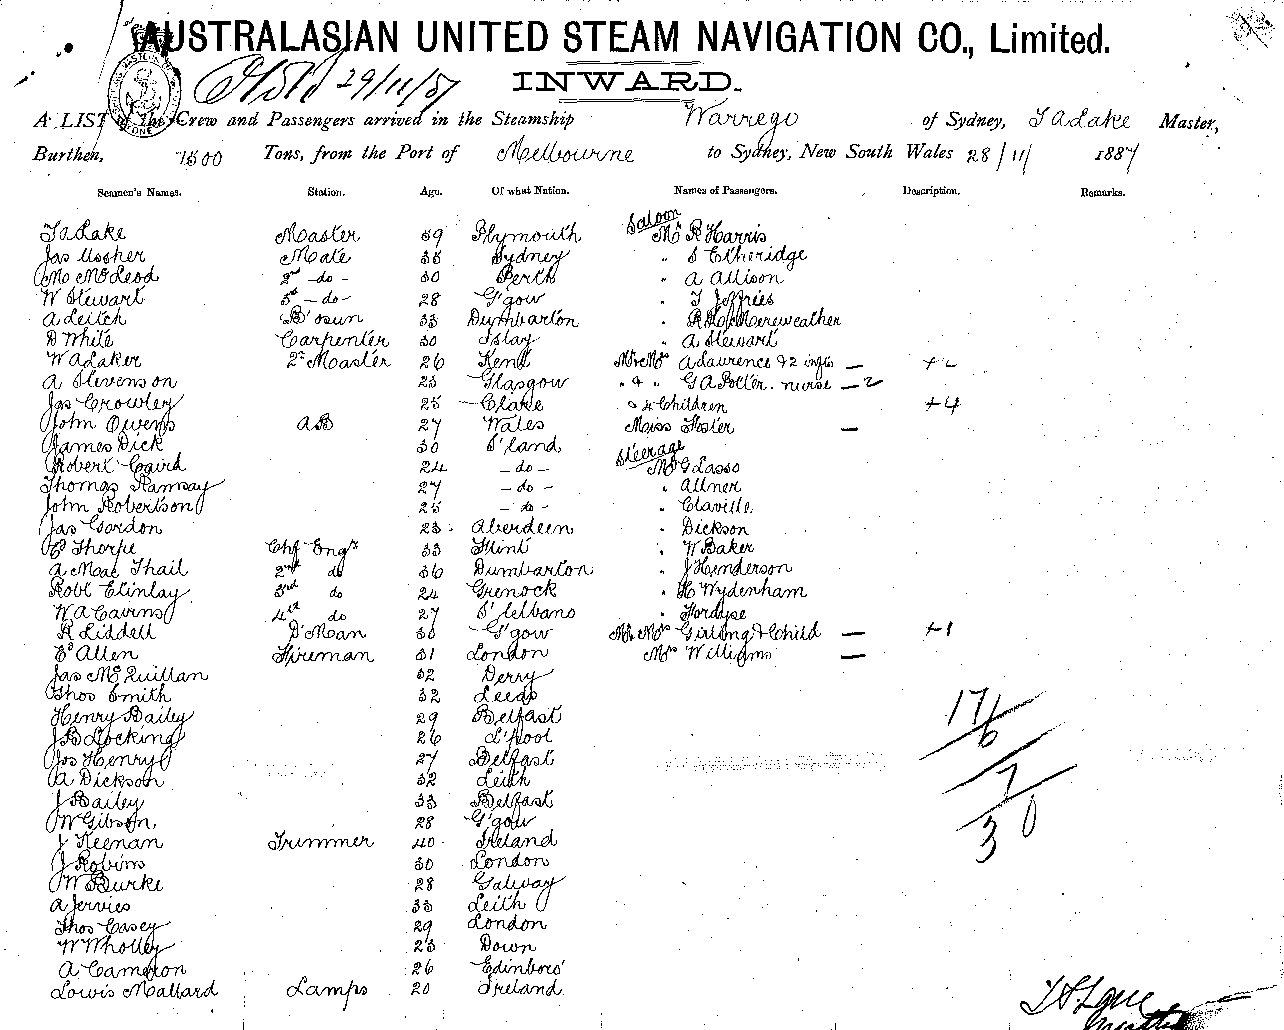 AUSTRALASIAN UNITED STEAM NAVIGATION CO., Limited.
29/11/87
INWARD.
A LIST of the Crew and Passengers arrived in the Steamship Warrego of Sydney, T A Lake Master,
Burthen, 1500 Tons, from the Port of Melbourne to Sydney, New South Wales 28/11/ 1887
Seamen's Names. Station. Age. Of what Nation. Names of Passengers. Description. Remarks.
Saloon
T A Lake Master 39 Plymouth Mr R Harris
Jas Ussher Mate 35 Sydney " S Etheridge
M McLeod 2nd -do- 30 Perth " A Allison
W Stewart 3rd -do- 28 G'gow " T Jeffries
A Leitch B'osun 33 Dumbarton " Mereweather
D White Carpenter 30 Islay " A Stewart
W A Laker 2nd Master 26 Kent Mr & Mrs A Laurence & 2 infts — +2
A Stevenson 23 Glasgow " & " G A Potter. nurse — 2
Jas Crowley 25 Clare & 4 Children +4
John Owens AB 27 Wales Miss Foster —
James Dick 30 S'land
Steerage
Robert Caird 24 -do- Mr G Lasso
Thomas Ramsay 27 -do- " Allner
John Robertson 25 -do- " Claville
Jas Gordon 23 Aberdeen " Dickson
E Thorpe Chf Engr 33 Flint " W Baker
A Mac Thail 2nd do 36 Dumbarton " J Henderson
Robt Etinlay 3rd do 24 Grenock " H Wydenham
W A Cavins 4th do 27 " Fordyse
R Liddell D'Man 30 G'gow Mr Mrs Girling & Child — +1
E Allen Fireman 31 London Mrs Williams —
Jas McQuillan 32 Derry
Thos Smith 32 Leeds
Henry Bailey 29 Belfast
J B Locking 26 L'pool
Jos Henry 27 Belfast
A Dickson 32 Leith
J Bailey 33 Belfast
W Gibson 28 G'gow
J Keenan Trimmer 40 Ireland
J Robins 30 London
W Burke 28 Galway
A Jervies 33 Leith
Thos Casey 29 London
W Wholley 23 Down
A Cameron 26 Edinboro'
Lowis Mallard Lamps 20 Ireland
17/6
7
3 0
T A Lake
Master